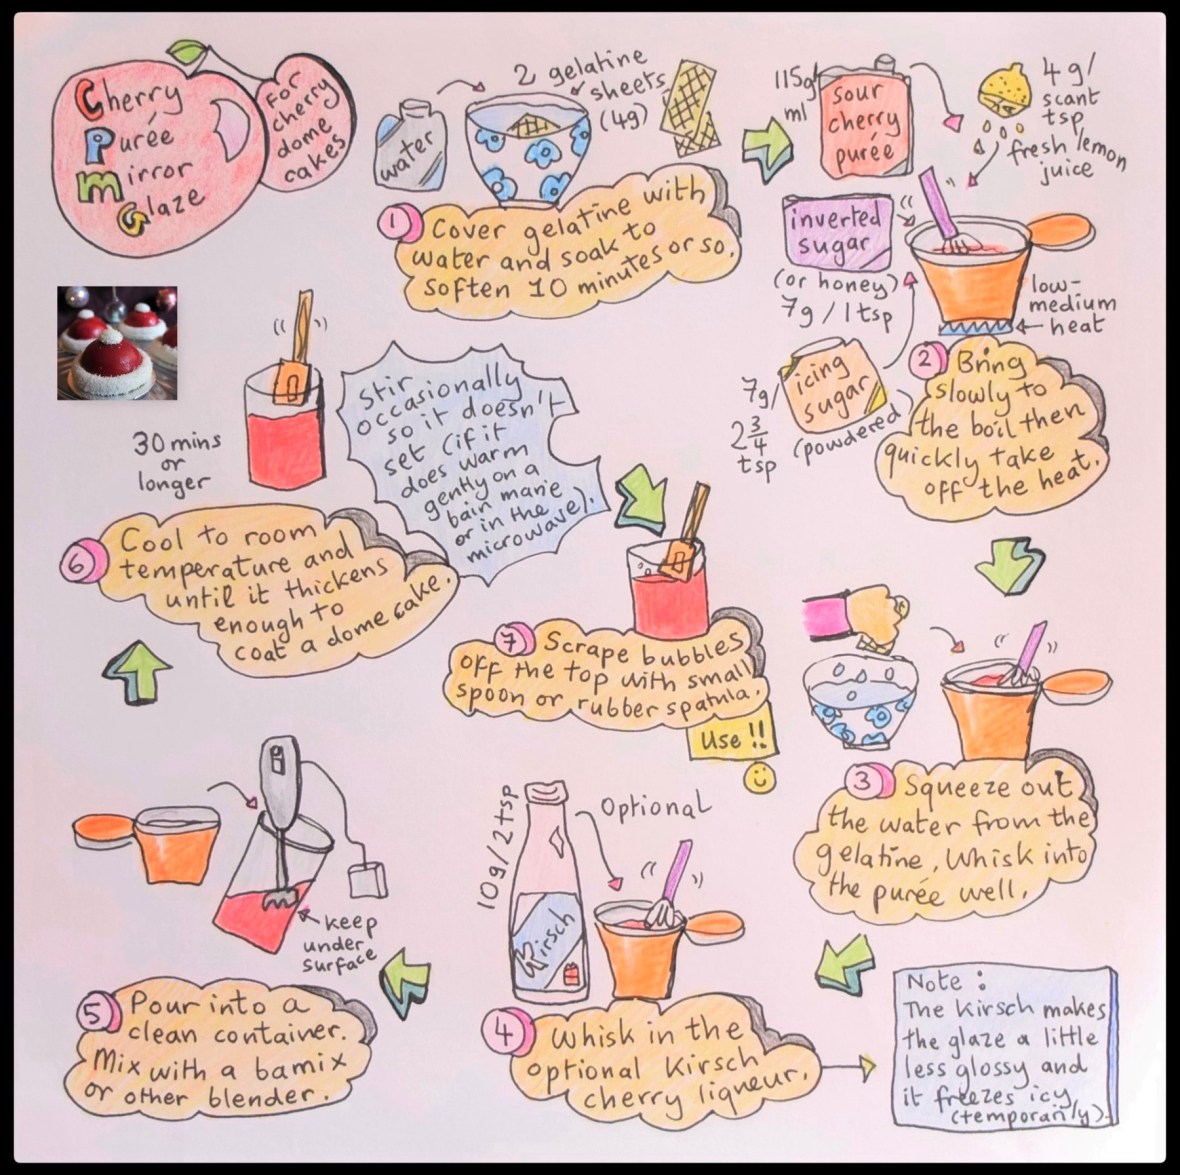 Cherry
Purée
Mirror
Glaze
For
cherry
dome
cakes
water
2 gelatine
sheets
(4g)
1
Cover gelatine with
water and soak to
soften 10 minutes or so.
115g/
ml
sour
cherry
purée
4g/
scant
tsp
fresh lemon
juice
inverted
sugar
(or honey)
7g/1tsp
icing
sugar
(powdered)
7g/
2 3/4
tsp
low-
medium
heat
2
Bring
slowly to
the boil then
quickly take
off the heat.
3
Squeeze out
the water from the
gelatine, Whisk into
the purée well.
10g/2tsp
Kirsch
Optional
4
Whisk in the
optional Kirsch
cherry liqueur.
Note:
The Kirsch makes
the glaze a little
less glossy and
it freezes icy
(temporarily).
keep
under
surface
5
Pour into a
clean container.
Mix with a bamix
or other blender.
30 mins
or
longer
6
Cool to room
temperature and
until it thickens
enough to
coat a dome cake.
Stir
occasionally
so it doesn't
set (if it
does warm
gently on a
bain marie
or in the
microwave).
7
Scrape bubbles
off the top with small
spoon or rubber spatula.
Use!!